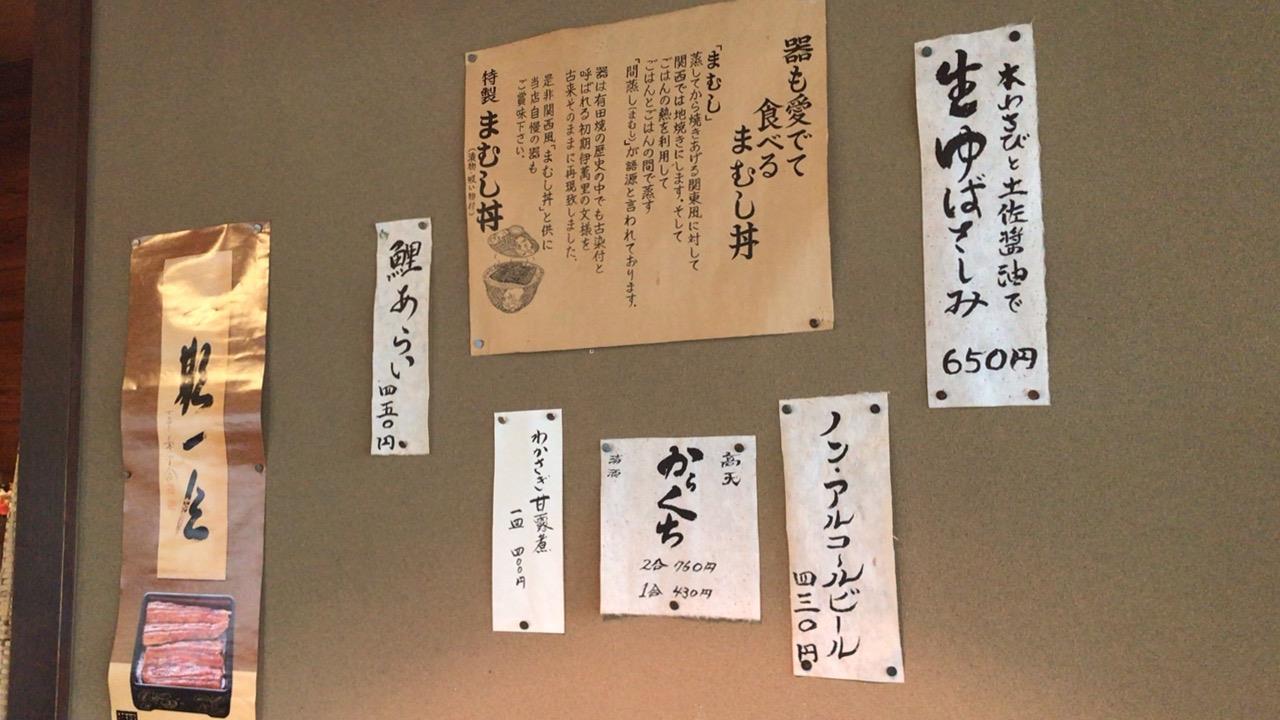 本わさびと土佐醤油で
生ゆばさしみ
650円
器も愛でて
食べる
まむし丼
「まむし」
蒸してから焼きあげる関東風に対して
関西では地焼きにします。そして
ごはんの熱を利用して
ごはんとごはんの間で蒸す
「間蒸し(まむし)」が語源と言われております。
器は有田焼の歴史の中でも古染付と
呼ばれる初期伊萬里の文様を
古来そのままに再現致しました。
是非関西風「まむし丼」と供に
当店自慢の器も
ご賞味下さい。
特製 まむし丼
(漬物・吸い物付)
鯉あらい
四五〇円
ノン・アルコールビール
四三〇円
高天
からくち
2合 760円
1合 430円
わかさぎ甘露煮
一皿 四〇〇円